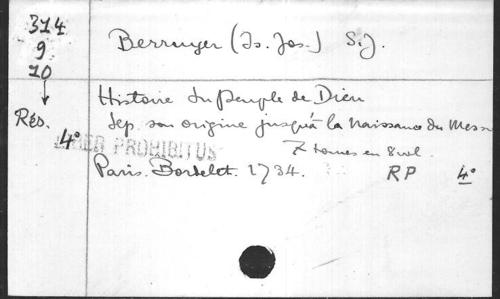 314
9
10
Rés.
4°
Berruyer (Is. Jos.) S.J.
Histoire du peuple de Dieu
dep. son origine jusqu'à la Naissance du Mess
7 tomes en 8 vol.
LIBER PROHIBITUS
Paris. Bordelet. 1734. RP 4°